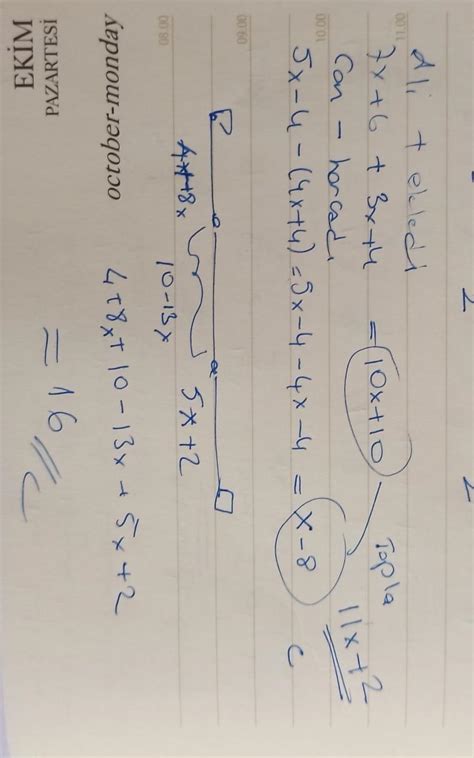 2 2
Ali + ekledi
11.00
7x+6 + 3x+4 = 10x+10 Topla
Can - harcadı 11x+2
10.00
5x-4-(4x+4)=5x-4-4x-4 = x-8 C
09.00
4+8x 10-13x 5x+2
08.00
4+8x+10-13x+5x+2
october-monday
= 16 // C
PAZARTESİ
EKİM